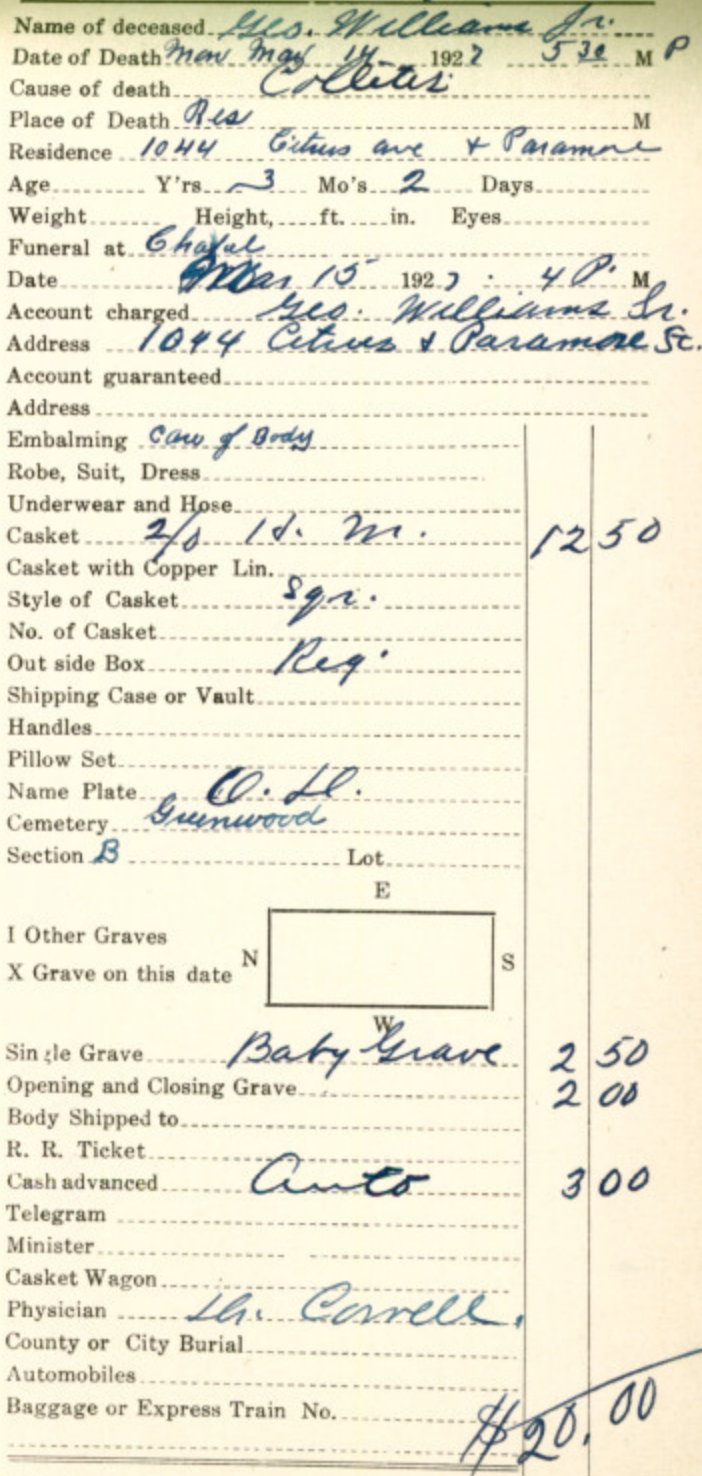 Name of deceased Geo. Williams Jr.
Date of Death Mon May 14 1927 5 30 M P
Cause of death Collitis
Place of Death Res M
Residence 1044 Citrus ave & Paramore
Age Y'rs 3 Mo's 2 Days
Weight Height, ft. in. Eyes
Funeral at Chapel
Date Mar 15 1927 4 P. M
Account charged Geo. Williams Sr.
Address 1044 Citrus & Paramore St.
Account guaranteed
Address
Embalming Care of Body
Robe, Suit, Dress
Underwear and Hose
Casket 2/0 H. M. 12 50
Casket with Copper Lin.
Style of Casket Sqr.
No. of Casket
Out side Box Reg.
Shipping Case or Vault
Handles
Pillow Set
Name Plate O. D.
Cemetery Greenwood
Section B Lot
E
I Other Graves
N S
X Grave on this date
W
Single Grave Baby Grave 2 50
Opening and Closing Grave 2 00
Body Shipped to
R. R. Ticket
Cash advanced Auto 3 00
Telegram
Minister
Casket Wagon
Physician Dr. Correll.
County or City Burial
Automobiles
Baggage or Express Train No. $20.00